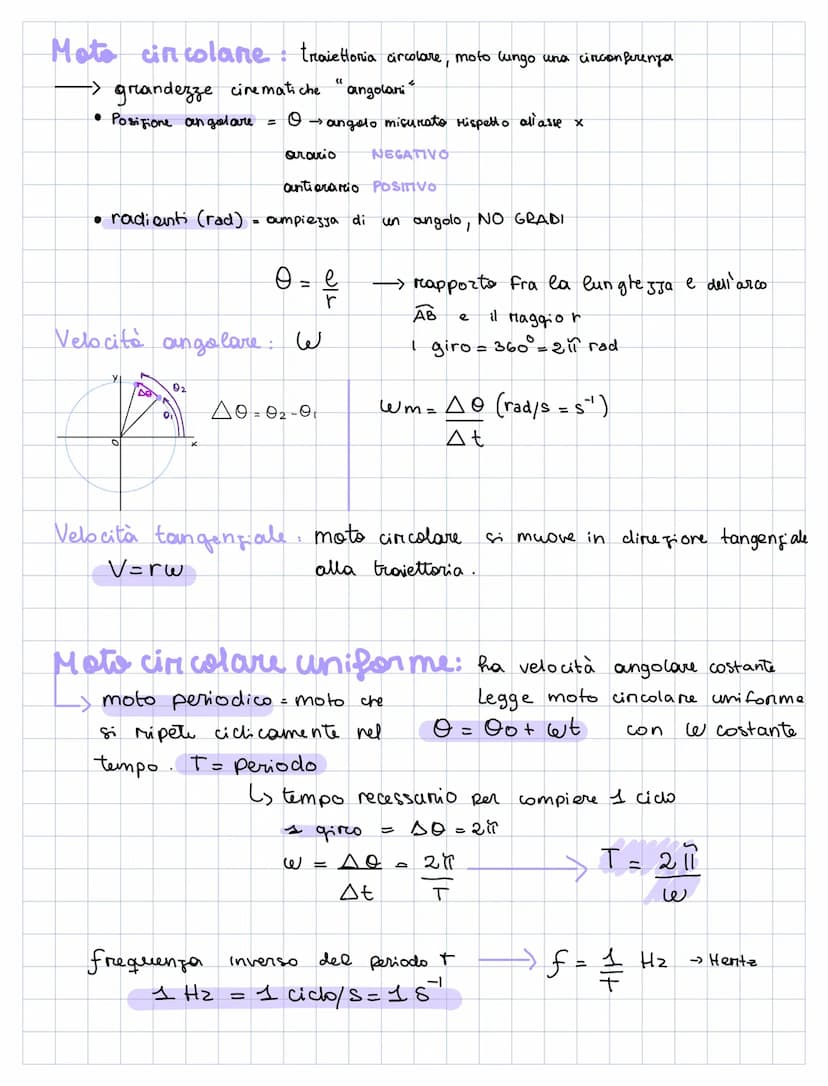 Moto circolare : traiettoria circolare, moto lungo una circonferenza
→ grandezze cinematiche "angolari"
• Posizione angolare = θ → angolo misurato rispetto all'asse x
orario NEGATIVO
antiorario POSITIVO
• radianti (rad) = ampiezza di un angolo, NO GRADI
θ = l/r → rapporto fra la lunghezza e dell'arco
AB e il raggio r
1 giro = 360° = 2π rad
Velocità angolare : ω
y θ2 Δθ θ1 0 x
Δθ = θ2 - θ1
ωm = Δθ/Δt (rad/s = s⁻¹)
Velocità tangenziale : moto circolare si muove in direzione tangenziale
V = rω alla traiettoria.
Moto circolare uniforme: ha velocità angolare costante
↳ moto periodico = moto che
si ripete ciclicamente nel
tempo. T = periodo
Legge moto circolare uniforme
θ = θ0 + ωt con ω costante
↳ tempo necessario per compiere 1 ciclo
1 giro = Δθ = 2π
ω = Δθ/Δt = 2π/T → T = 2π/ω
frequenza inverso del periodo T → f = 1/T Hz → Hertz
1 Hz = 1 ciclo/s = 1 s⁻¹